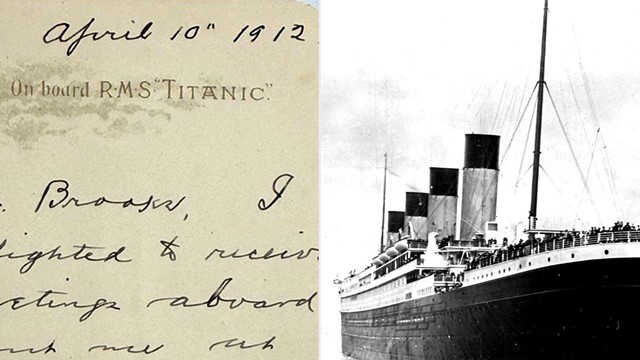 April 10" 1912
On board R•M•S "TITANIC".
. Brooks, I
lighted to receiv
etings aboard
me at